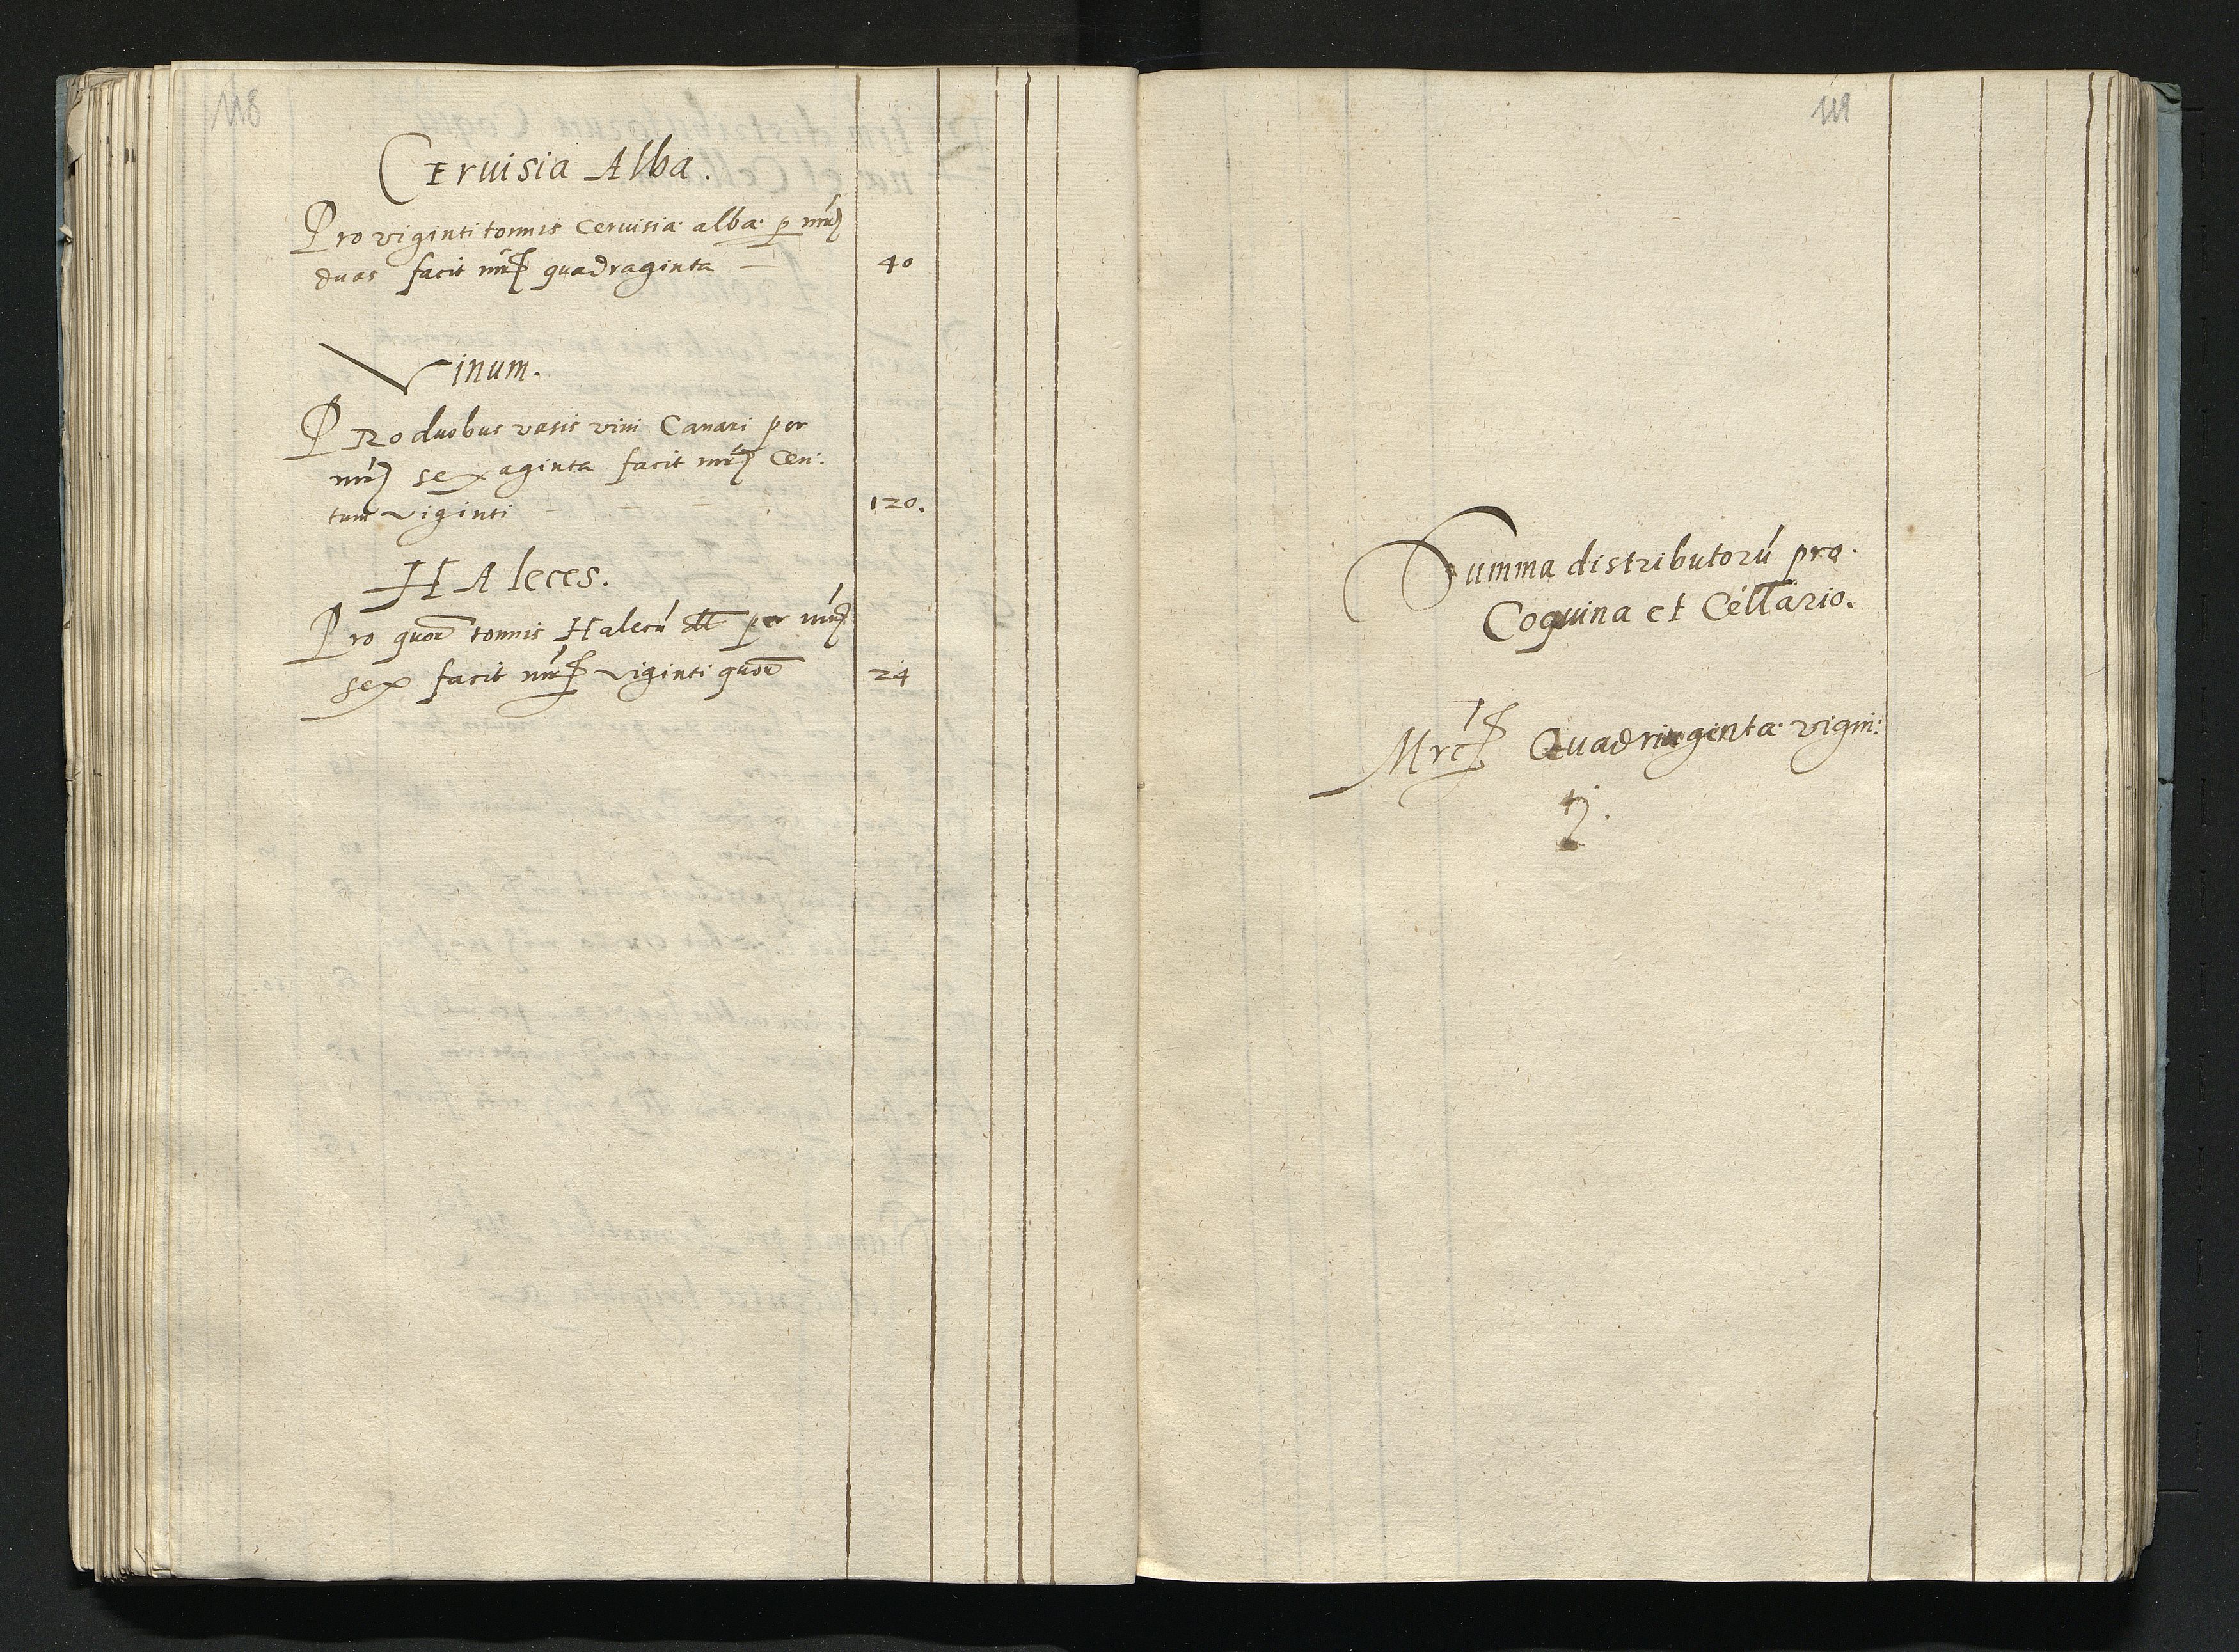 118
Ceruisia Alba.
Pro viginti tonnis Ceruisiæ albæ p mrc
duas facit mrc quadraginta — 40
Vinum.
Pro duobus vasis vini Canari per
mrc sexaginta facit mrc Cen:
tum viginti — — — 120.
HAleces.
Pro quor tonnis Halecú per mrc
sex facit mrc viginti quor 24
119
Summa distributorú pro.
Coquina et Cellario.
Mrc Quadringenta vigin:
ti.